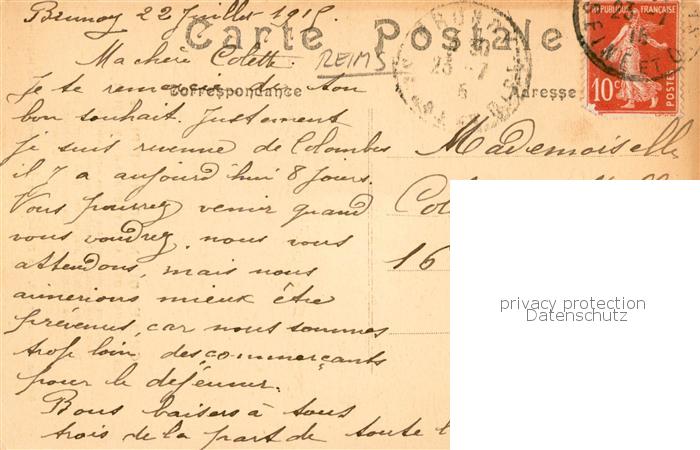 Brunoy 22 Juillet 1915
Carte Postale
REIMS
Ma chère Colette.
Correspondance
Adresse
Je te remercie de ton
bon souhait. Justement
je suis revenue de Colombes
il y a aujourd'hui 8 jours.
Vous pourrez venir quand
vous voudrez, nous vous
attendons, mais nous
aimerions mieux être
prévenus, car nous sommes
trop loin des commerçants
pour le déjeuner.
Bons baisers à tous
trois de la part de toute l
Mademoiselle
Col
16
RÉPUBLIQUE FRANÇAISE
10c
POSTES
SEINE ET O
privacy protection
Datenschutz